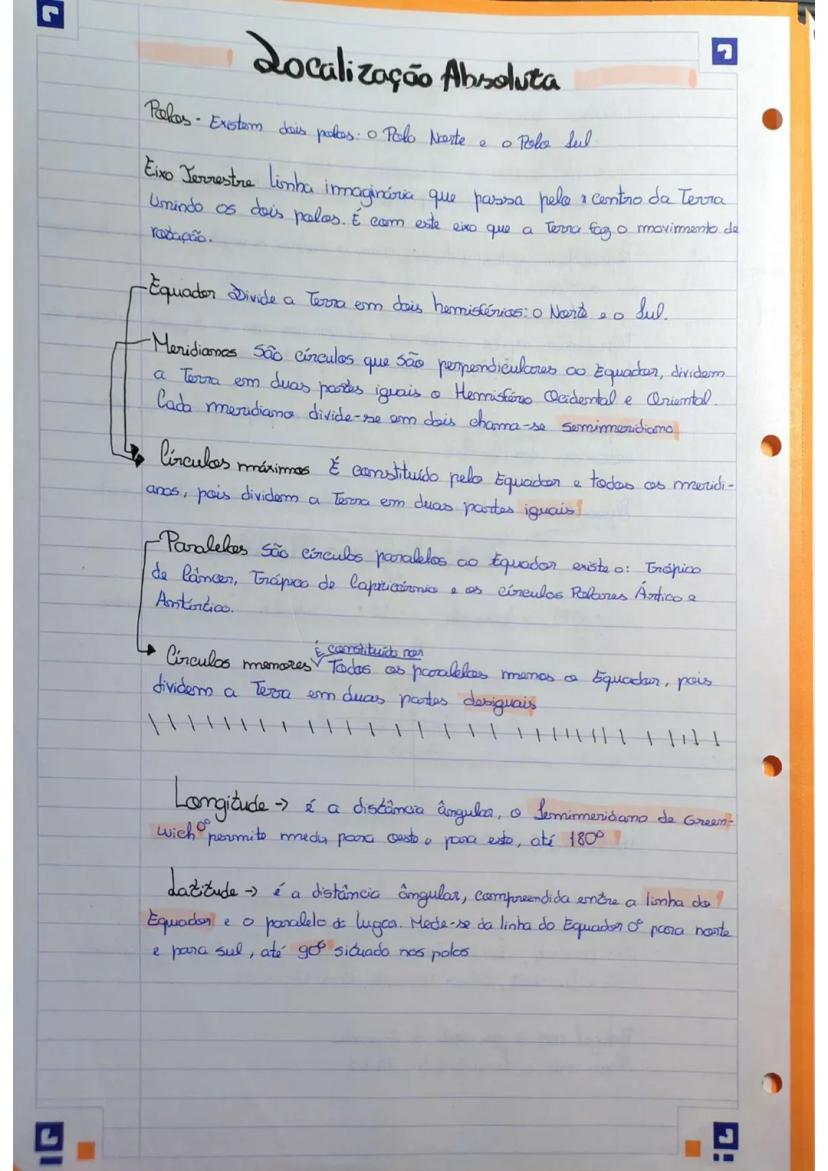 Localização Absoluta
Polos - Existem dois polos: o Polo Norte e o Polo Sul
Eixo Terrestre linha imaginária que passa pelo centro da Terra
unindo os dois polos. É com este eixo que a Terra faz o movimento de
rotação.
Equador Divide a Terra em dois hemisférios: o Norte e o Sul.
Meridianos São círculos que são perpendiculares ao Equador, dividem
a Terra em duas partes iguais o Hemisfério Ocidental e Oriental.
Cada meridiano divide-se em dois chama-se semimeridiano
Círculos máximos É constituído pelo Equador e todos os meridi-
anos, pois dividem a Terra em duas partes iguais
Paralelos São círculos paralelos ao Equador existe o: Trópico
de Câncer, Trópico de Capricórnio e os círculos Polares Ártico e
Antártico.
É constituído por
Círculos menores Todos os paralelos menos o Equador, pois
dividem a Terra em duas partes desiguais
Longitude → é a distância ângular, o Semimeridiano de Green-
wich 0º permite medir para oeste e para este, até 180º
Latitude → é a distância ângular, compreendida entre a linha do
Equador e o paralelo de lugar. Mede-se da linha do Equador 0º para norte
e para sul, até 90º situado nos polos